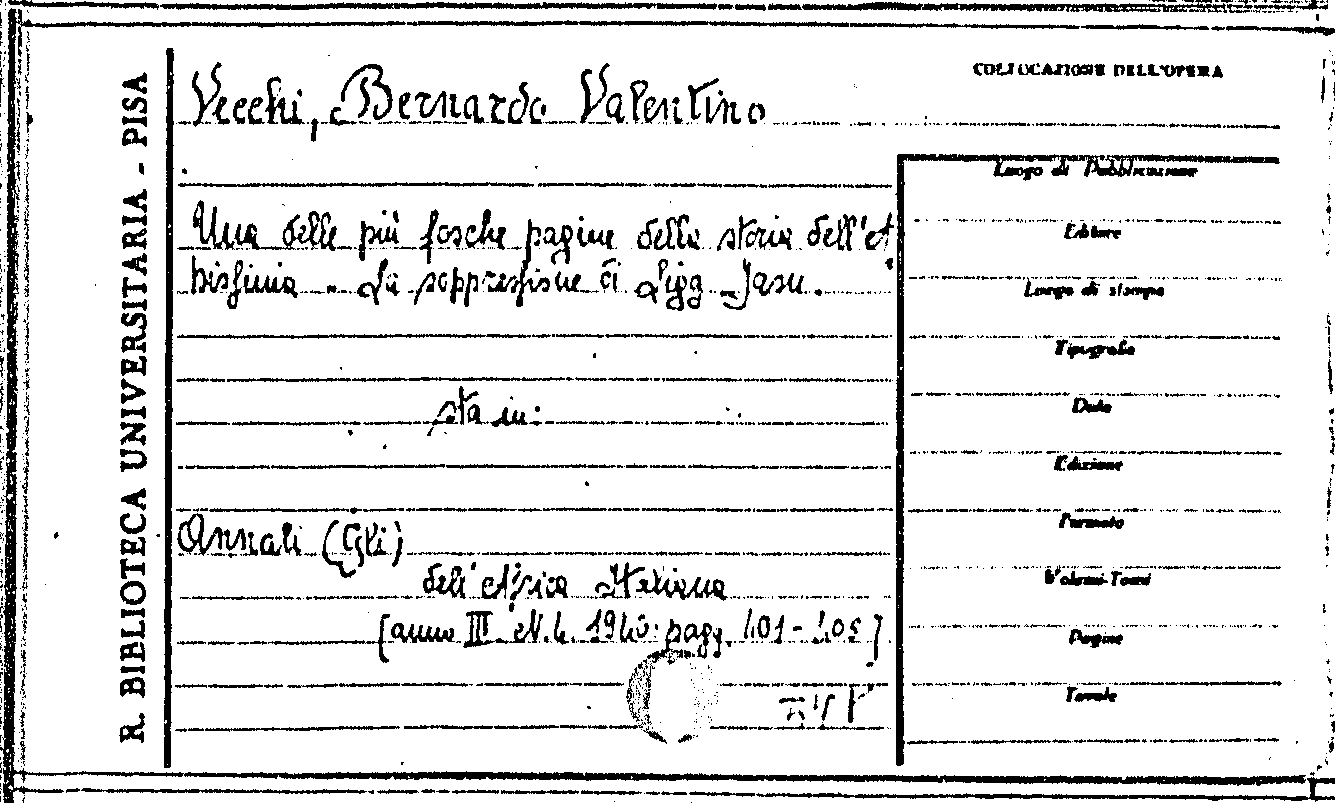 R. BIBLIOTECA UNIVERSITARIA - PISA
Vecchi, Bernardo Valentino
Una delle più fosche pagine della storia dell'A
bissinia - La soppressione di Ligg Jasu.
sta in:
Annali (Gli)
dell'Africa Italiana
[anno III. N. 4. 1940. pagg. 401-405]
COLLOCAZIONE DELL'OPERA
Luogo di Pubblicazione
Editore
Luogo di stampa
Tipografo
Data
Edizione
Formato
Volumi-Tomi
Pagine
Tavole